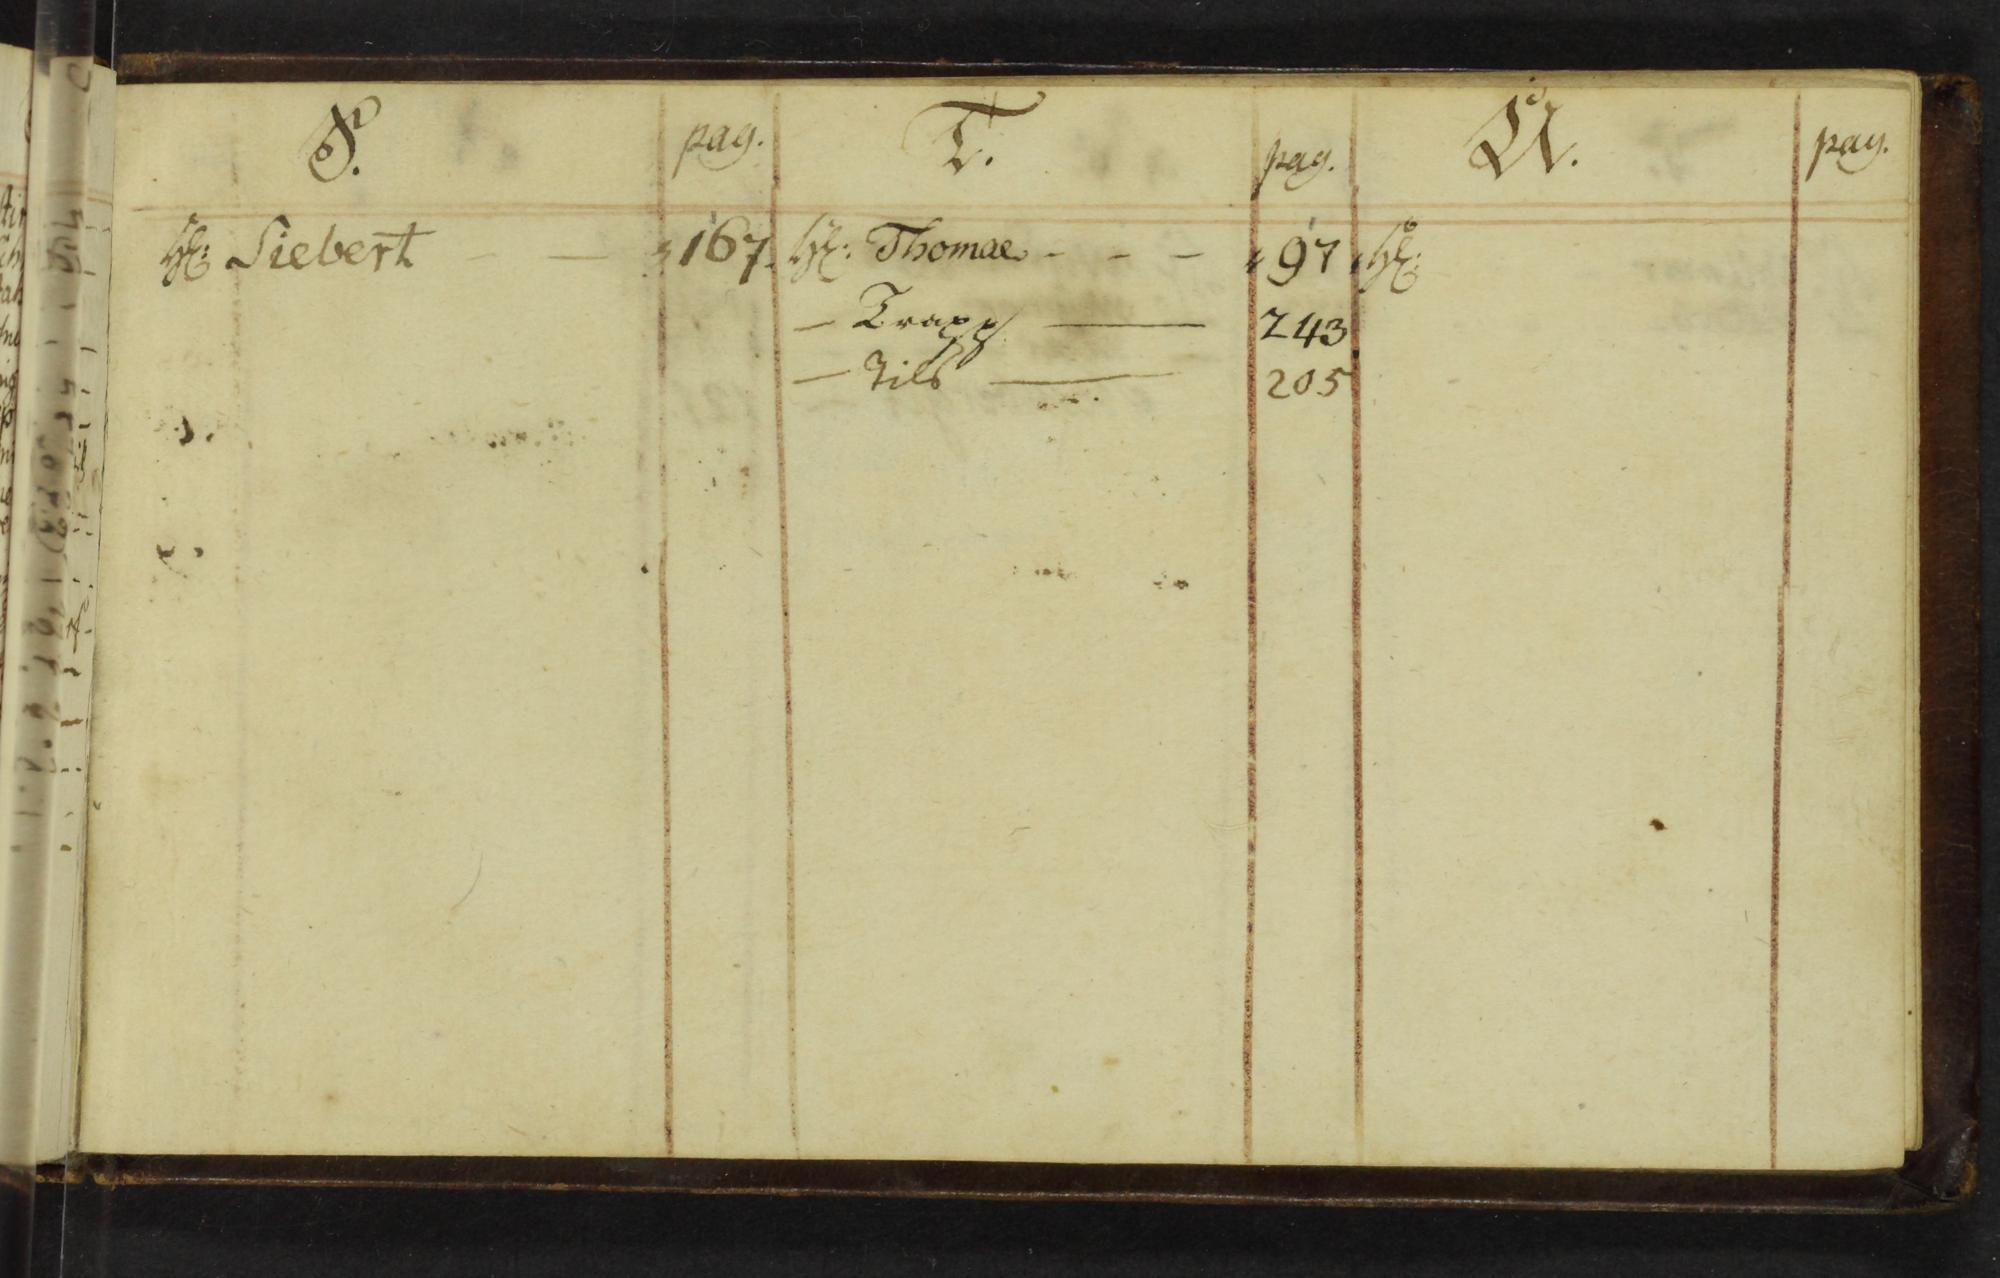 S. pag. T. pag. U. pag.
H: Siebert — — 167. H: Thomae - - - 97 H:
— Trapp — 243
— Tils — 205